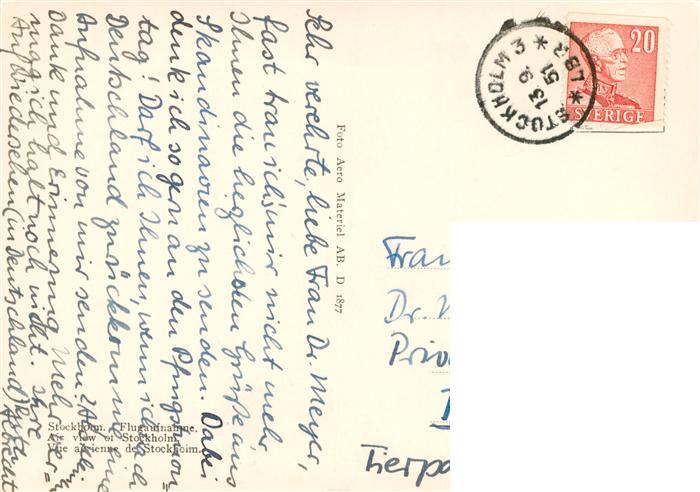 Sehr verehrte, liebe Frau Dr. Meyer,
fast trau ich's mir nicht mehr
Ihnen die herzlichsten Grüße aus
Skandinavien zu senden. Dabei
denk ich so gern an den Pfingstmon=
tag! Darf ich Ihnen, wenn ich nach
Deutschland zurückkomme eine
Aufnahme von mir senden? Als kl.
Dank und Erinnerung. Mehr ver=
mag ich halt noch nicht. Ihre
Auf Wiedersehen (in Deutschland)
Albrecht
Foto Aero Materiel AB. D 1877
Stockholm. Flugaufnahme.
Air view of Stockholm.
Vue aérienne de Stockholm.
STOCKHOLM 3 * LBR *
13 9
51
20
SVERIGE
Frau
Dr.
Tierpa